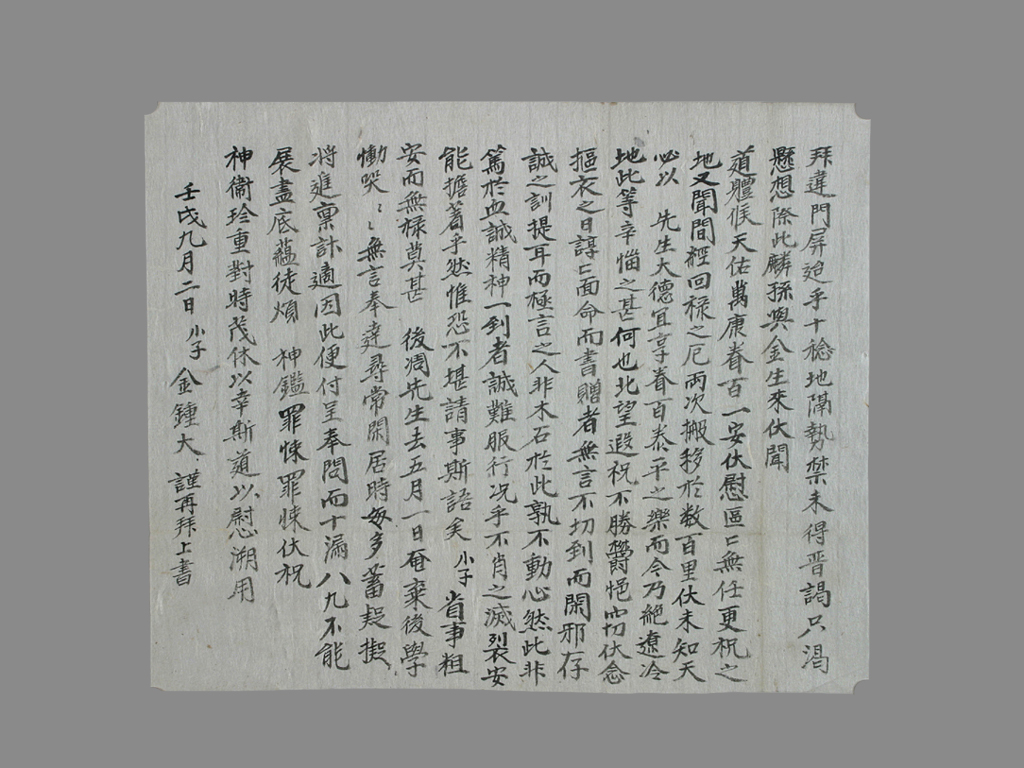 拜違門屛迨乎十稔地隔勢禁未得晋謁只渴
懸想際此麟孫與金生來伏聞
道體候天佑萬康眷百一安伏慰區〻無任更祝之
地又聞間經回祿之厄兩次搬移於数百里伏未知天
必以 先生大德宜享眷百泰平之樂而今乃絶遼冷
地此等辛惱之甚何也北望遐祝不勝欝悒竊伏念
摳衣之日諄〻面命而書贈者無言不切到而閑邪存
誠之訓提耳而極言之人非木石於此孰不動心然此非
篤於血誠精神一到者誠難服行况乎不肖之滅裂安
能擔着乎然惟恐不堪請事斯語矣 小子 省事粗
安而無祿莫甚 後凋先生去五月一日奄棄後學
慟哭〻〻無言奉達尋常閑居時每多蓄疑擬
將進稟計適因此便付呈奉問而十漏八九不能
展盡底蘊徒煩 神鑑罪悚罪悚伏祝
神衛珍重對時茂休以幸斯道以慰溯用
壬戌九月二日 小子 金鍾大 謹再拜上書